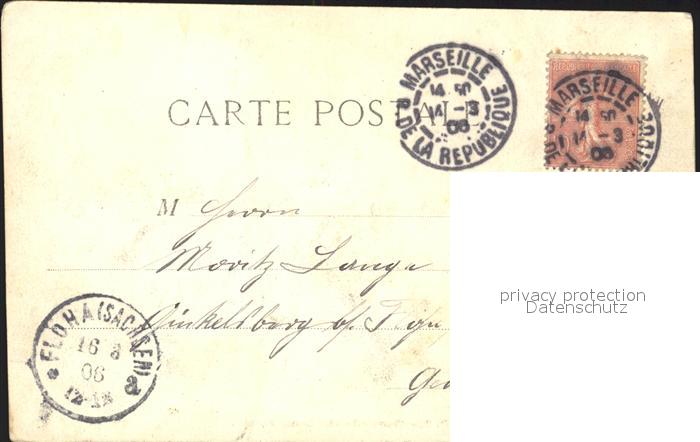 MARSEILLE
14 50
14 - 3
06
R. DE LA REPUBLIQUE
MARSEILLE
14 50
14 - 3
06
CARTE POSTALE
M Herrn
Moritz Lange
privacy protection
Datenschutz
FLÖHA (SACHSEN)
16 3
06
* a